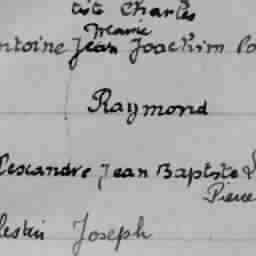 tiste Charles
Marie
ntoine Jean Joachim
Raymond
lexandre Jean Baptiste
Pierre
lestin Joseph